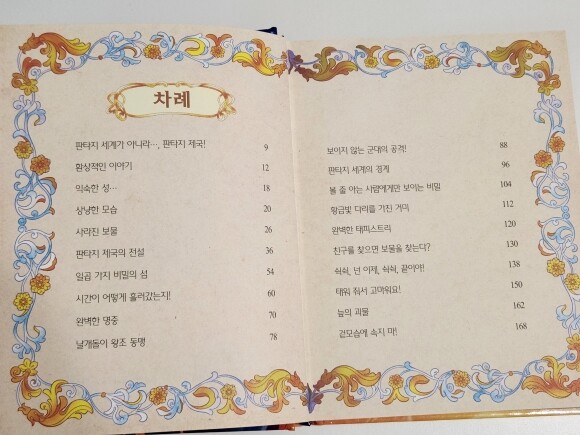 차례
판타지 세계가 아니라…, 판타지 제국! 9
환상적인 이야기 12
익숙한 성… 18
상냥한 모습 20
사라진 보물 26
판타지 제국의 전설 36
일곱 가지 비밀의 섬 54
시간이 어떻게 흘러갔는지! 60
완벽한 명중 70
날개돋이 왕조 동맹 78
보이지 않는 군대의 공격! 88
판타지 세계의 경계 96
볼 줄 아는 사람에게만 보이는 비밀 104
황금빛 다리를 가진 거미 112
완벽한 태피스트리 120
친구를 찾으면 보물을 찾는다? 130
쉭쉭, 넌 이제, 쉭쉭, 끝이야! 138
태워 줘서 고마워요! 150
늪의 괴물 162
겉모습에 속지 마! 168